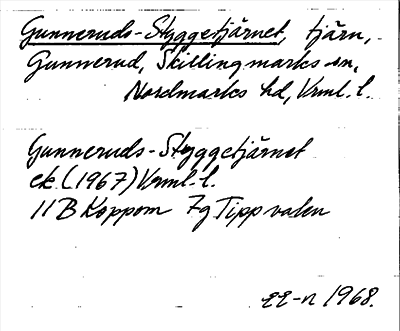 Gunneruds-Styggetjärnet, tjärn,
Gunnerud, Skillingmarks sn,
Nordmarks hd, Vrml. l.
Gunneruds-Styggetjärnet
ek. (1967) Vrml. l.
11B Koppom 7g Tippvalen
1968.